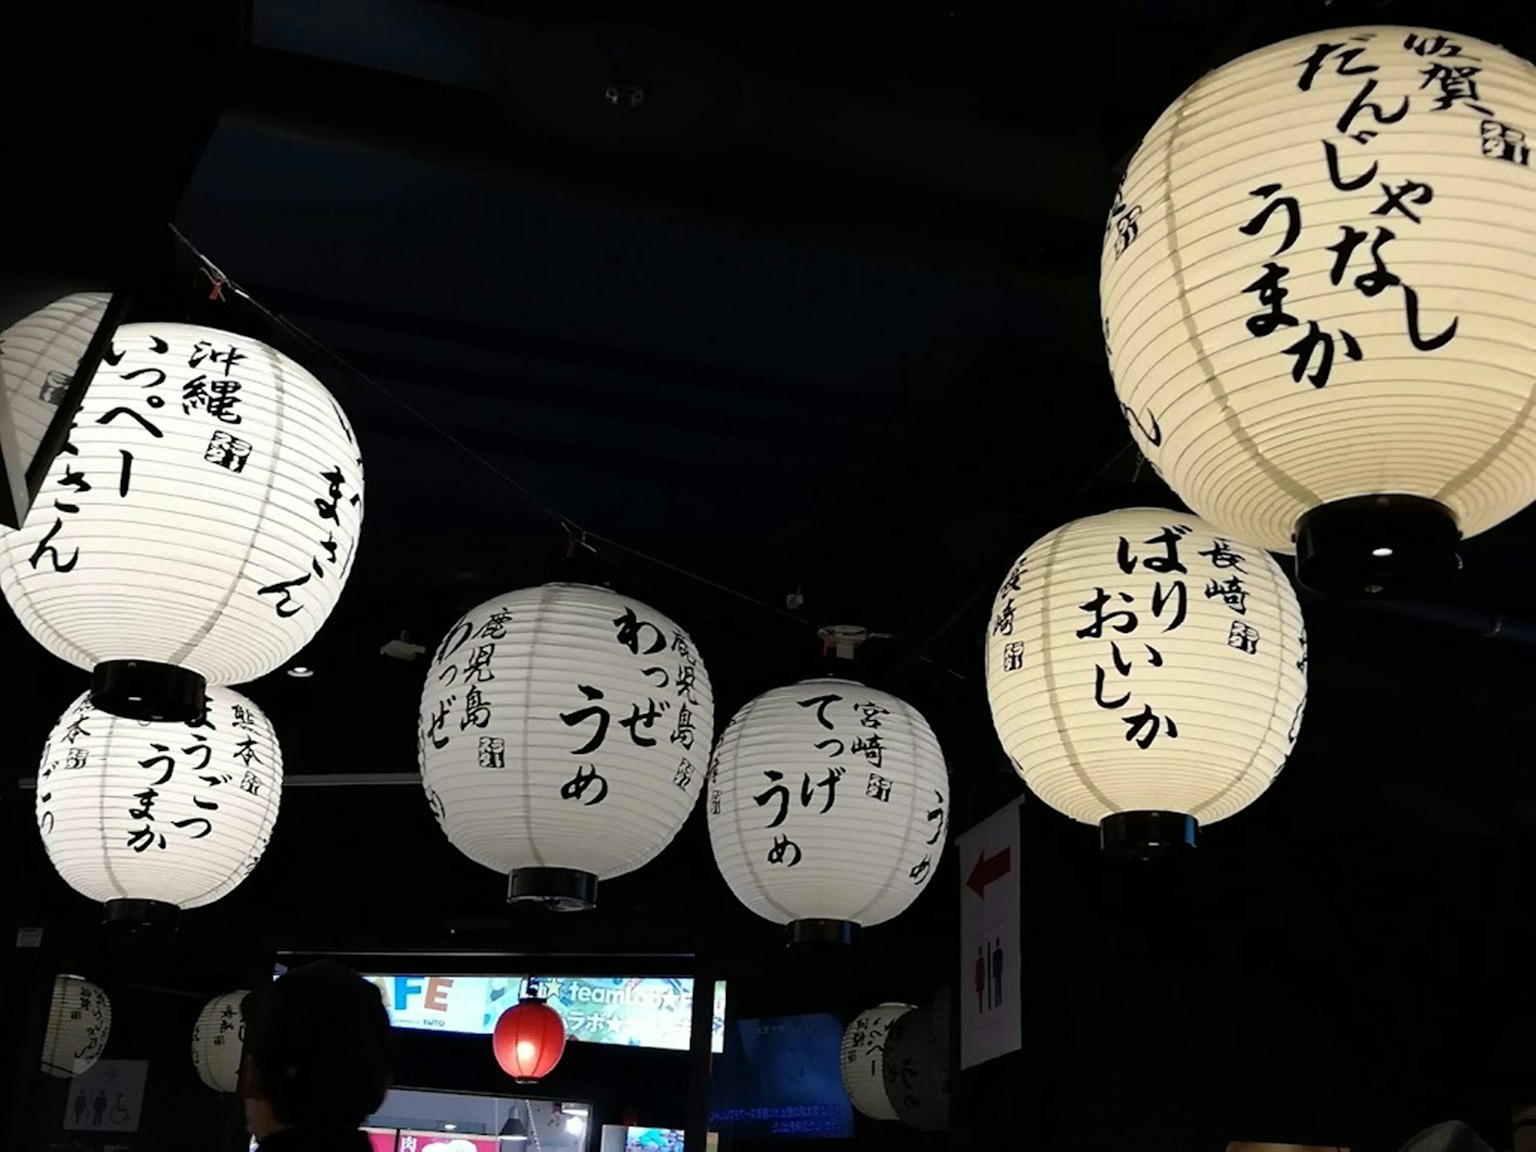 佐賀
だんじゃなし
うまか
沖縄
いっぺー
まさん
まさん
長崎
ばり
おいしか
長崎
鹿児島
わっぜ
うめ
鹿児島
わっぜ
宮崎
てっげ
うめ
うめ
熊本
まうごつ
うまか
熊本
FE
teamLab★
ラボ★
肉